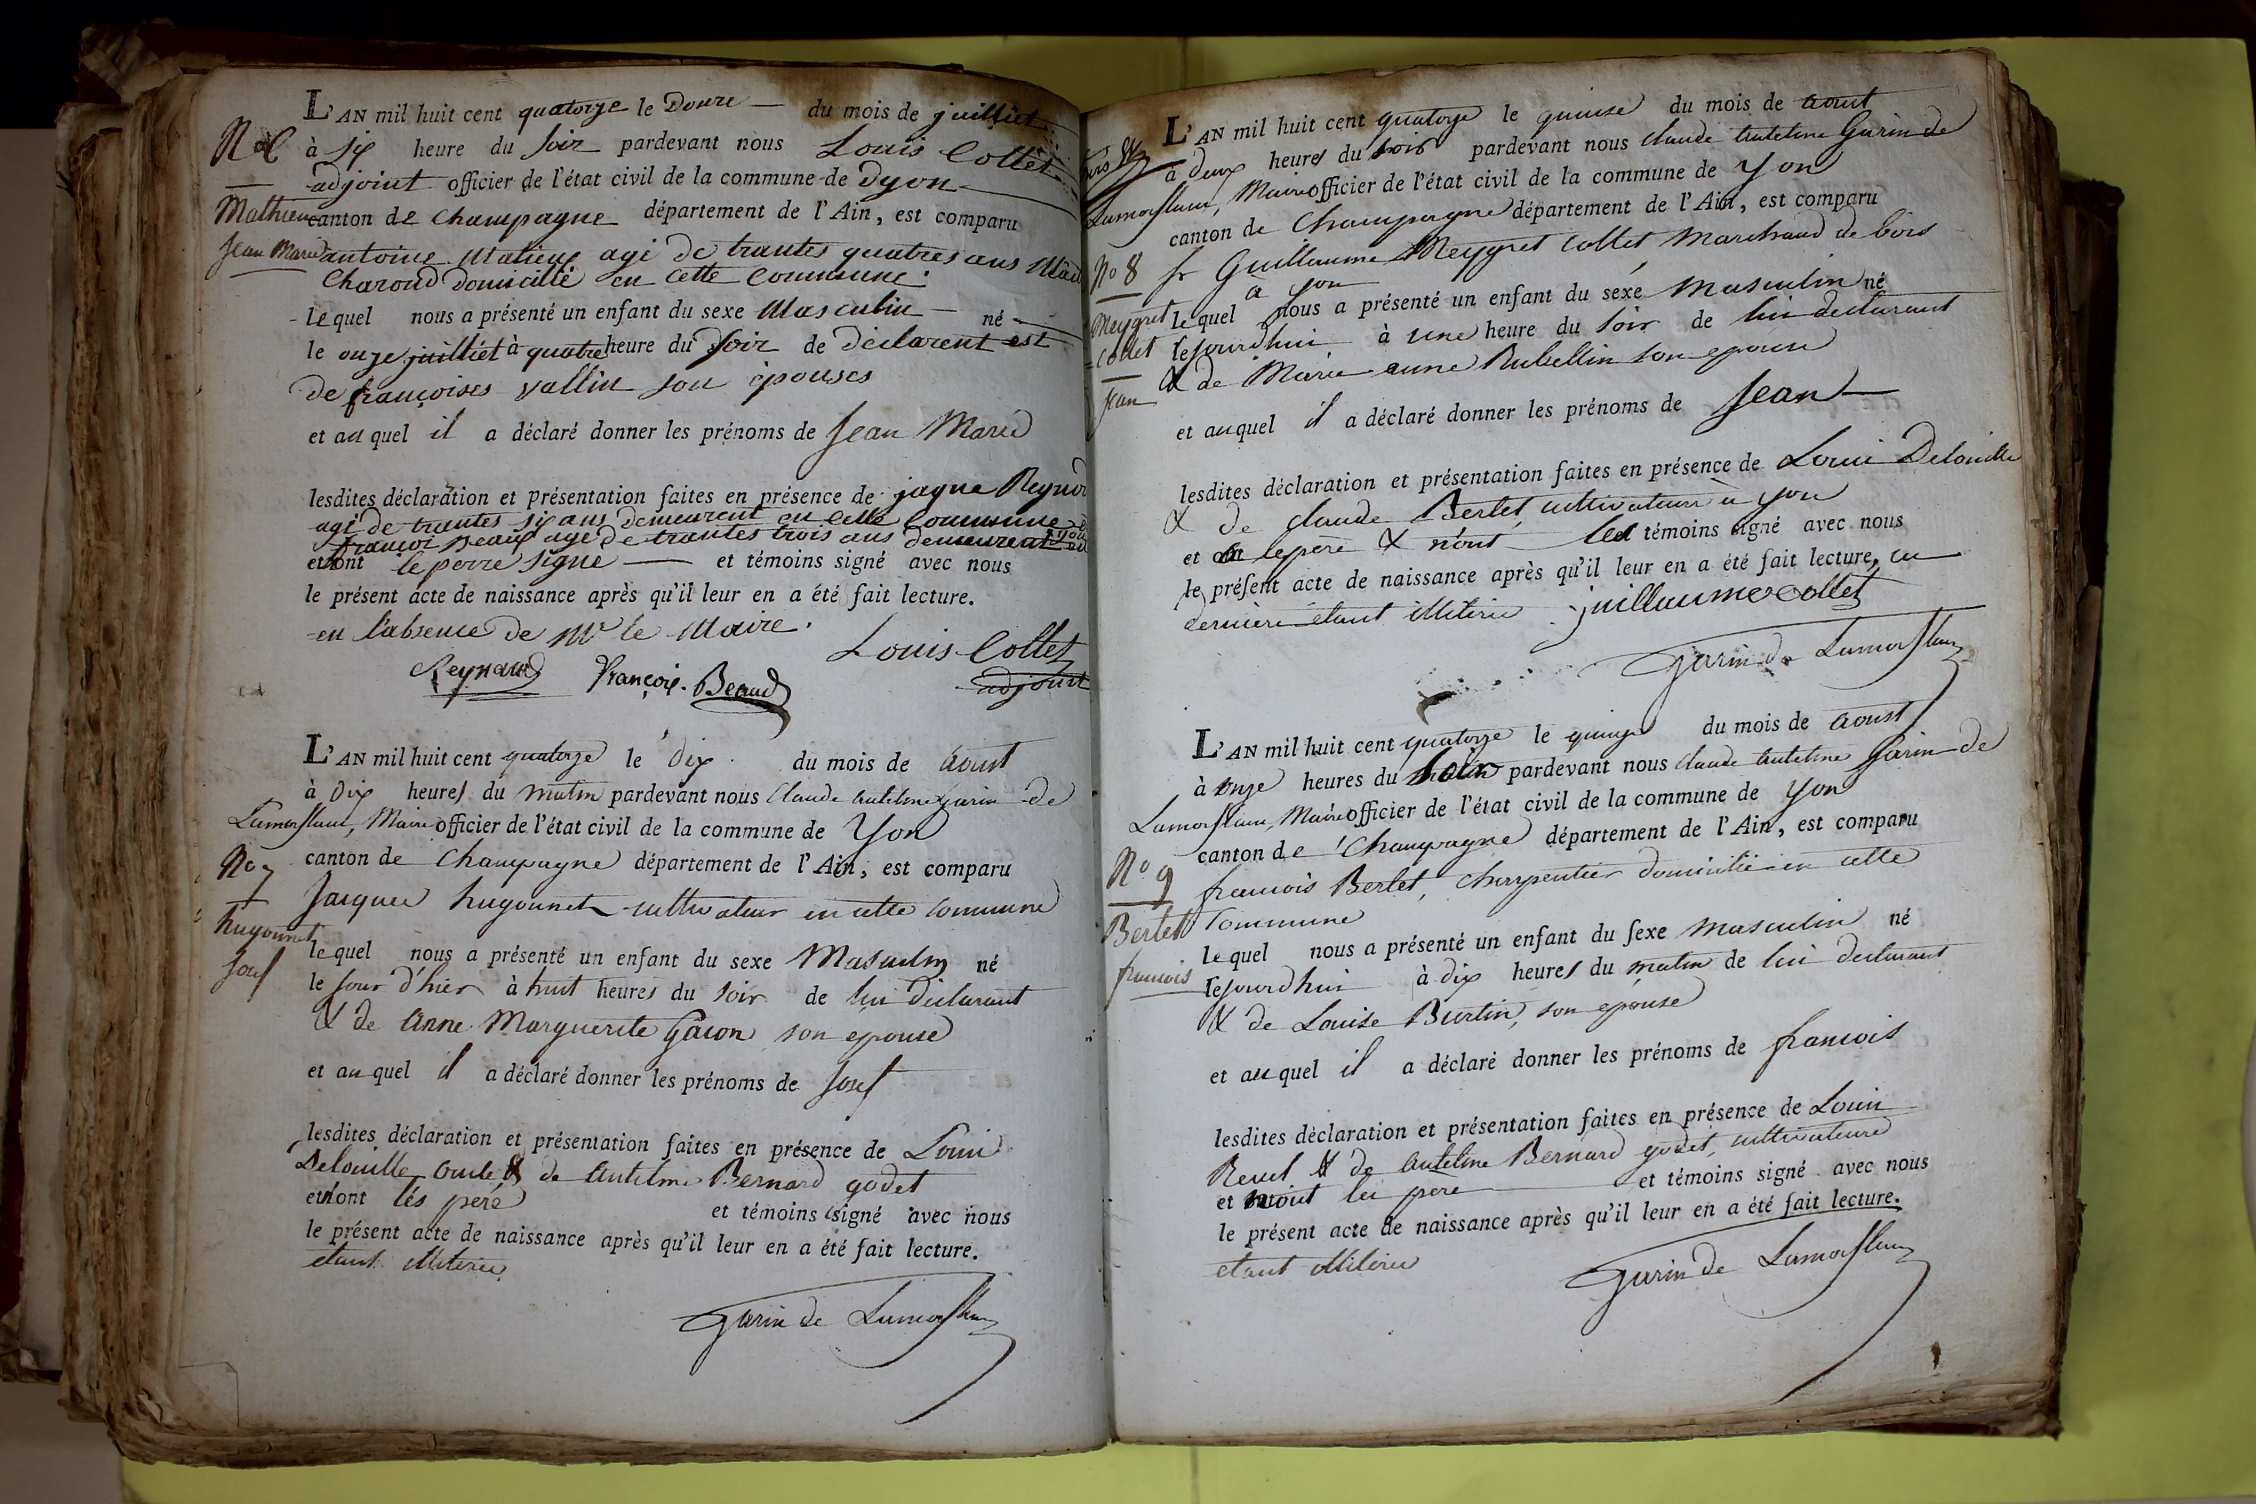 L'AN mil huit cent quatorze le Douze du mois de juilliet
N° 6
à six heure du soir pardevant nous Louis Collet
adjoint officier de l'état civil de la commune de Dyon
Mathieu
canton de Champagne département de l'Ain, est comparu
Jean Marie
antoine Matieux agé de trantes quatres ans
Charond domicillié en cette commune
lequel nous a présenté un enfant du sexe Masculin né
le onze juilliet à quatre heure du soir de declarent est
de françoises vallin son epouses
et auquel il a déclaré donner les prénoms de Jean Marie
lesdites déclaration et présentation faites en présence de jaque
agé de trantes six ans demeurent en cette commune
françoi Beaux age de trantes trois ans demeurent
et ont le perre signe et témoins signé avec nous
le présent acte de naissance après qu'il leur en a été fait lecture.
en l'absence de Mr le Maire.
Louis Collet
Reynaud François Beaud adjoint
L'AN mil huit cent quatorze le dix du mois de aoust
à dix heures du matin pardevant nous Claude antelme Garin de
Maire officier de l'état civil de la commune de Yon
No 7
canton de Champagne département de l'Ain, est comparu
Jacques hugonnet cultivateur en cette commune
hugonnet
lequel nous a présenté un enfant du sexe Masculin né
Josef
le jour d'hier à huit heures du soir de lui declarant
& de Anne Marguerite Gacon son epouse
et auquel il a déclaré donner les prénoms de Josef
lesdites déclaration et présentation faites en présence de Louis
Delouille & de Antelme Bernard godet
et n'ont les père et témoins signé avec nous
le présent acte de naissance après qu'il leur en a été fait lecture.
etant illiteries
Garin de
L'AN mil huit cent quatorze le quinse du mois de aoust
à deux heures du soir pardevant nous Claude antelme Garin de
Maire officier de l'état civil de la commune de Yon
canton de Champagne département de l'Ain, est comparu
No 8
sr Guillaume Meygret Collet Marchand de bois
a yon
Meygret
lequel nous a présenté un enfant du sexe Masculin né
Collet
lejourdhui à une heure du soir de lui declarant
& de Marie anne Rubellin son epouse
Jean
et auquel il a déclaré donner les prénoms de Jean
lesdites déclaration et présentation faites en présence de Louis Delouille
& de Claude Berlet, cultivateurs à yon
et le père & n'ont les témoins signé avec nous
le présent acte de naissance après qu'il leur en a été fait lecture, ce
derniers étant illiteries guillaume collet
Garin de
L'AN mil huit cent quatorze le quinze du mois de aoust
à onze heures du pardevant nous Claude antelme Garin de
Maire officier de l'état civil de la commune de Yon
canton de Champagne département de l'Ain, est comparu
No 9
francois Berlet, charpentier domicilié en cette
Berlet
Commune
lequel nous a présenté un enfant du sexe Masculin né
francois
lejourdhui à dix heures du matin de lui declarant
& de Louise Burtin, son epouse
et auquel il a déclaré donner les prénoms de francois
lesdites déclaration et présentation faites en présence de Louis
& de antelme Bernard godet, cultivateurs
et n'ont les père et témoins signé avec nous
le présent acte de naissance après qu'il leur en a été fait lecture.
etant illiteries
Garin de